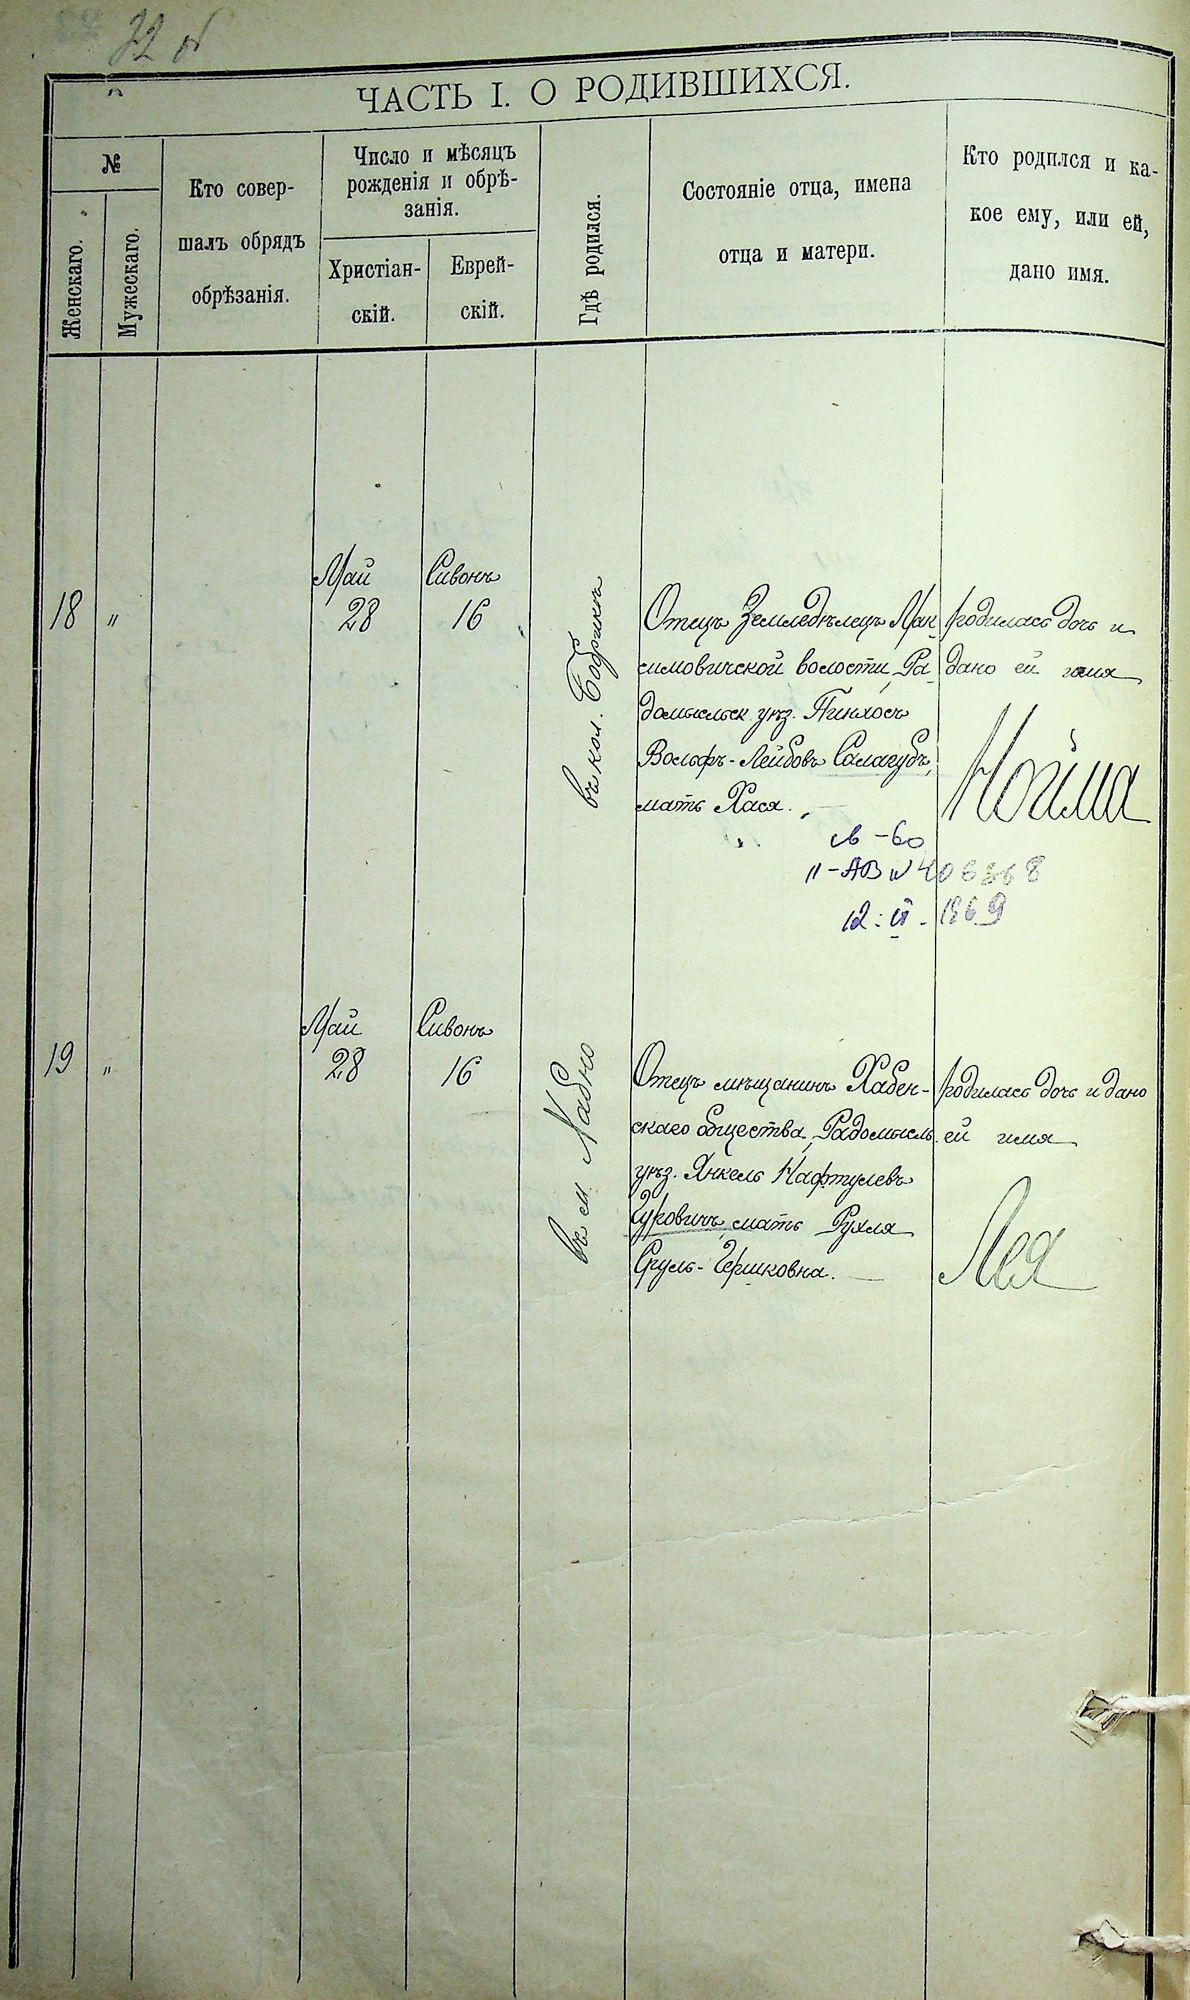 32 об
ЧАСТЬ I. О РОДИВШИХСЯ.
№
Женскаго.
Мужескаго.
Кто совер-
шалъ обрядъ
обрѣзанія.
Число и мѣсяцъ
рожденія и обрѣ-
занія.
Христіан-
скій.
Еврей-
скій.
Гдѣ родился.
Состояніе отца, имена
отца и матери.
Кто родился и ка-
кое ему, или ей,
дано имя.
18
"
Май
28
Сивонъ
16
въ кол. Бобрикъ
Отецъ Земледѣлецъ Мак-
симовичской волости, Ра-
домысльск. уѣз. Пинхосъ
Вольфъ-Лейбовъ Салагубъ,
мать Хася.
родилась дочь и
дано ей имя
Нойма
св - во
II - АВ №
12. II. 1969
19
"
Май
28
Сивонъ
16
въ м. Хабно
Отецъ мѣщанинъ Хабен-
скаго общества, Радомысль.
уѣз. Янкель Нафтулевъ
Гурович, мать Рухля
Сруль-Гершковна.
родилась дочь и дано
ей имя
Лея